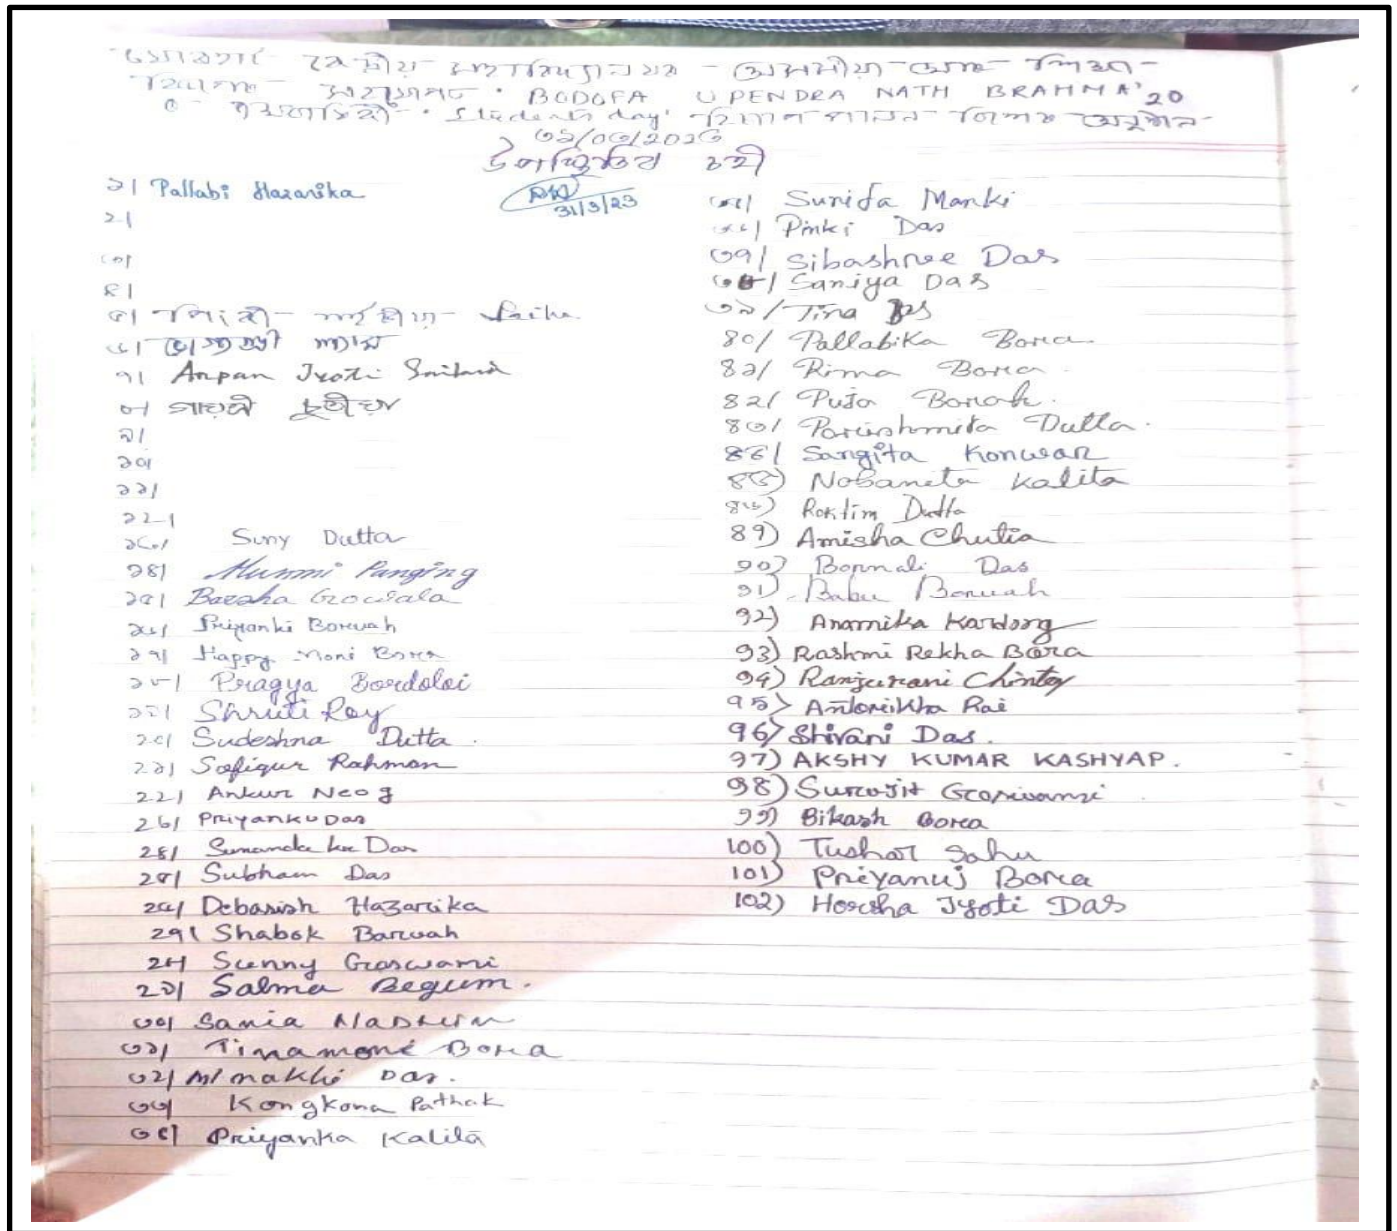 BODOFA UPENDRA NATH BRAHMA'20
Students day'
৩১/০৩/২০২৩
১| Pallabi Hazarika
31/3/23
২|
৩|
৪|
৫|
৬|
৭| Arpan Jyoti
৮| গায়ত্ৰী চুতীয়া
৯|
১০|
১১|
১২|
১৩| Suny Dutta
১৪| Munmi Panging
১৫| Barsha Gowala
১৬| Priyanki Boruah
১৭| Happy Moni Bora
১৮| Pragya Bordoloi
১৯| Shruti Roy
২০| Sudeshna Dutta.
২১| Sofiqur Rahman
২২| Ankur Neog
২৩| Priyanku Das
২৪| Sunanda Das
২৫| Subham Das
২৬| Debasish Hazarika
২৭| Shabok Baruah
২৮| Sunny Goswami
২৯| Salma Begum.
৩০| Sania
৩১| Tinamoni Bora
৩২| Minakhi Das.
৩৩| Kongkona Pathak
৩৪| Priyanka Kalita
৩৫| Sunita Manki
৩৬| Pinki Das
৩৭| Sibashree Das
৩৮| Saniya Das
৩৯| Tina Das
৪০| Pallabika Bora.
৪১| Rima Bora.
৪২| Puja Borah.
৪৩| Parishmita Dutta.
৪৪| Sangita Konwar
৪৫) Nobanita Kalita
৪৬) Roktim Dutta
৪৭) Amisha Chutia
90) Bonmali Das
91) Babu Boruah
92) Anamika Kardong
93) Rashmi Rekha Bora
94) Ranjurani Chintey
95> Antorikha Rai
96> Shivani Das.
97) AKSHY KUMAR KASHYAP.
98) Surojit Goswami
99) Bikash Bora
100) Tushar Sahu
101) Priyanuj Bora
102) Horsha Jyoti Das